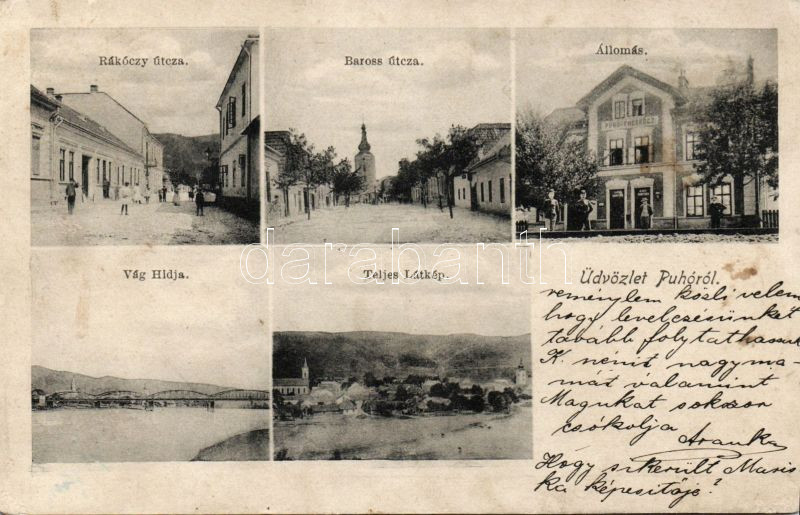 Rákóczy útcza.
Baross útcza.
Állomás.
Vág Hidja.
Teljes Látkép.
darabanth
Üdvözlet Puhóról.
reménylem közli velem
hogy levelezésünket
tovább folytathassuk
K. nénit nagyma-
mát valamint
Magukat sokszor
csókolja
Aranka
Hogy sikerült Maris
ka képesítője?